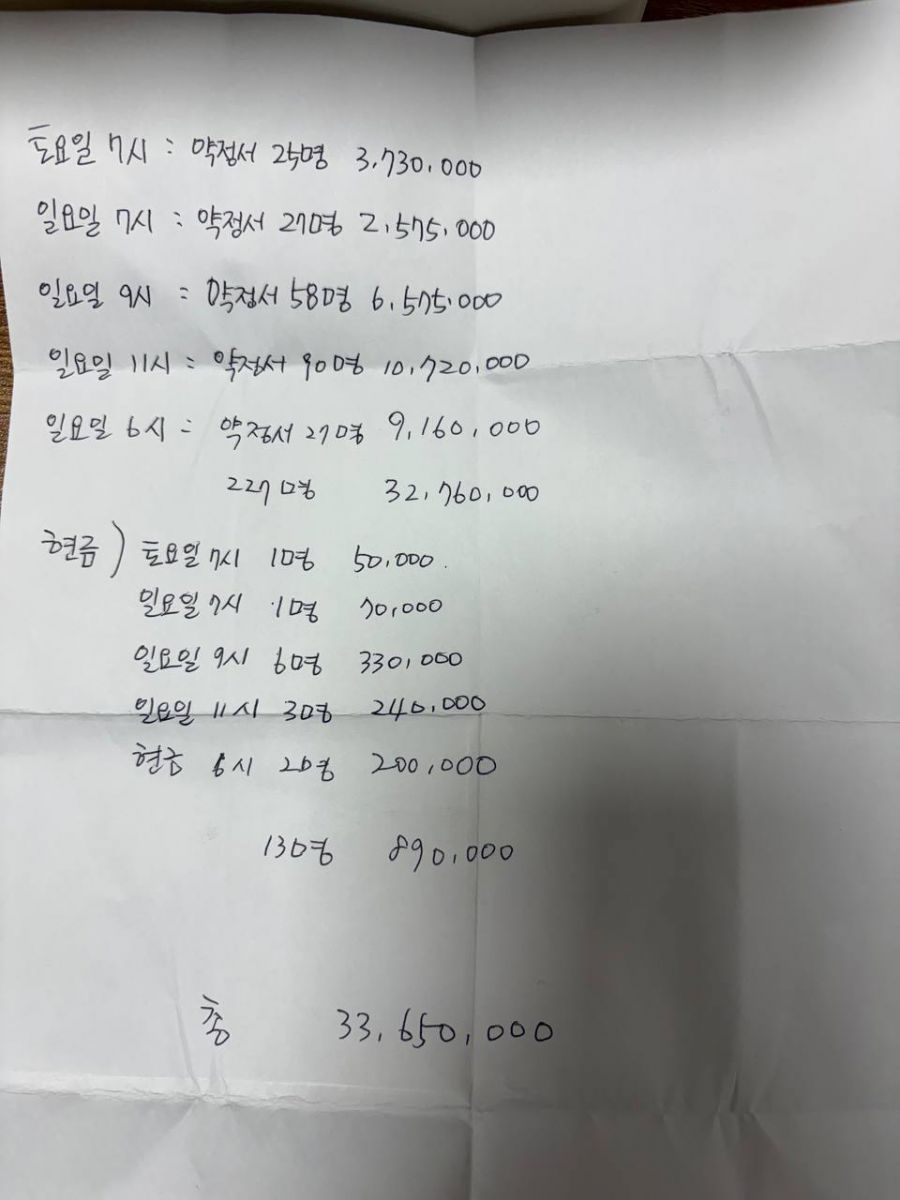 토요일 7시 : 약정서 25명 3,730,000
일요일 7시 : 약정서 27명 2,575,000
일요일 9시 : 약정서 58명 6,575,000
일요일 11시 : 약정서 90명 10,720,000
일요일 6시 : 약정서 27명 9,160,000
227명 32,760,000
현금) 토요일 7시 1명 50,000
일요일 7시 1명 70,000
일요일 9시 6명 330,000
일요일 11시 3명 240,000
현금 6시 2명 200,000
13명 890,000
총 33,650,000